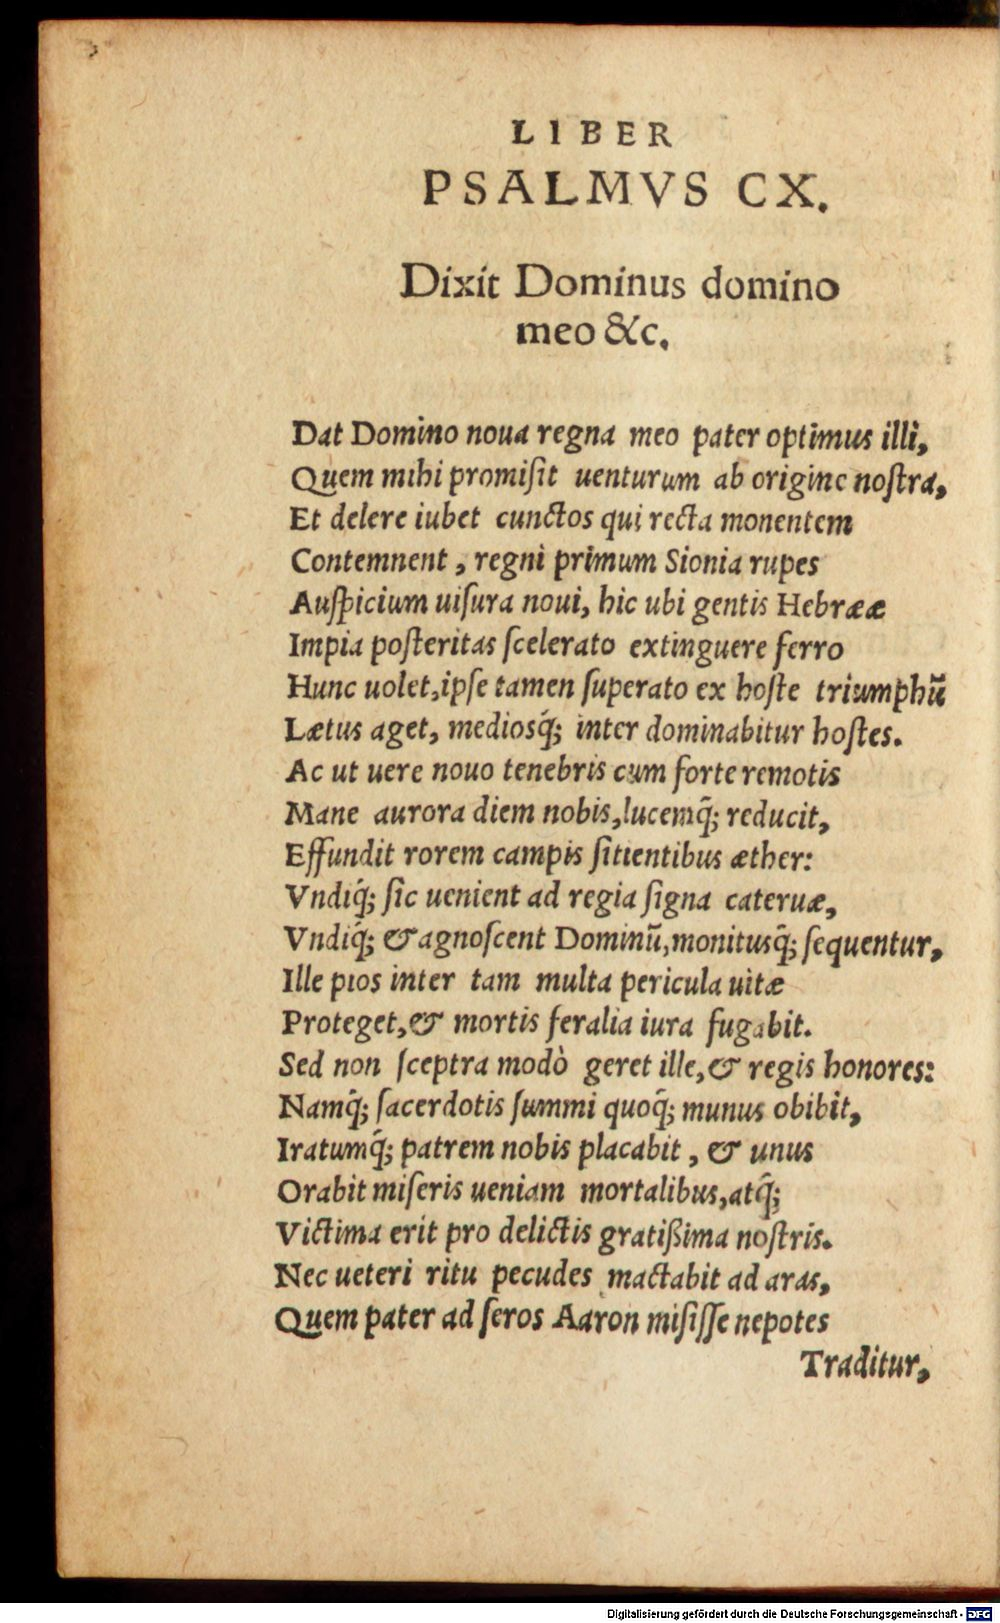 LIBER
PSALMVS CX.
Dixit Dominus domino
meo &c.
Dat Domino noua regna meo pater optimus illi,
Quem mihi promiſit uenturum ab origine noſtra,
Et delere iubet cunctos qui recta monentem
Contemnent, regni primum Sionia rupes
Auſpicium uiſura noui, hic ubi gentis Hebrææ
Impia poſteritas ſcelerato extinguere ferro
Hunc uolet, ipſe tamen ſuperato ex hoſte triumphū
Lætus aget, mediosq́; inter dominabitur hoſtes.
Ac ut uere nouo tenebris cum forte remotis
Mane aurora diem nobis, lucemq́; reducit,
Effundit rorem campis ſitientibus æther:
Vndiq́; ſic uenient ad regia ſigna cateruæ,
Vndiq́; & agnoſcent Dominū, monitusq́; ſequentur,
Ille pios inter tam multa pericula uitæ
Proteget, & mortis feralia iura fugabit.
Sed non ſceptra modò geret ille, & regis honores:
Namq́; ſacerdotis ſummi quoq́; munus obibit,
Iratumq́; patrem nobis placabit, & unus
Orabit miſeris ueniam mortalibus, atq́;
Victima erit pro delictis gratißima noſtris.
Nec ueteri ritu pecudes mactabit ad aras,
Quem pater ad ſeros Aaron miſiſſe nepotes
Traditur,
Digitalisierung gefördert durch die Deutsche Forschungsgemeinschaft - DFG